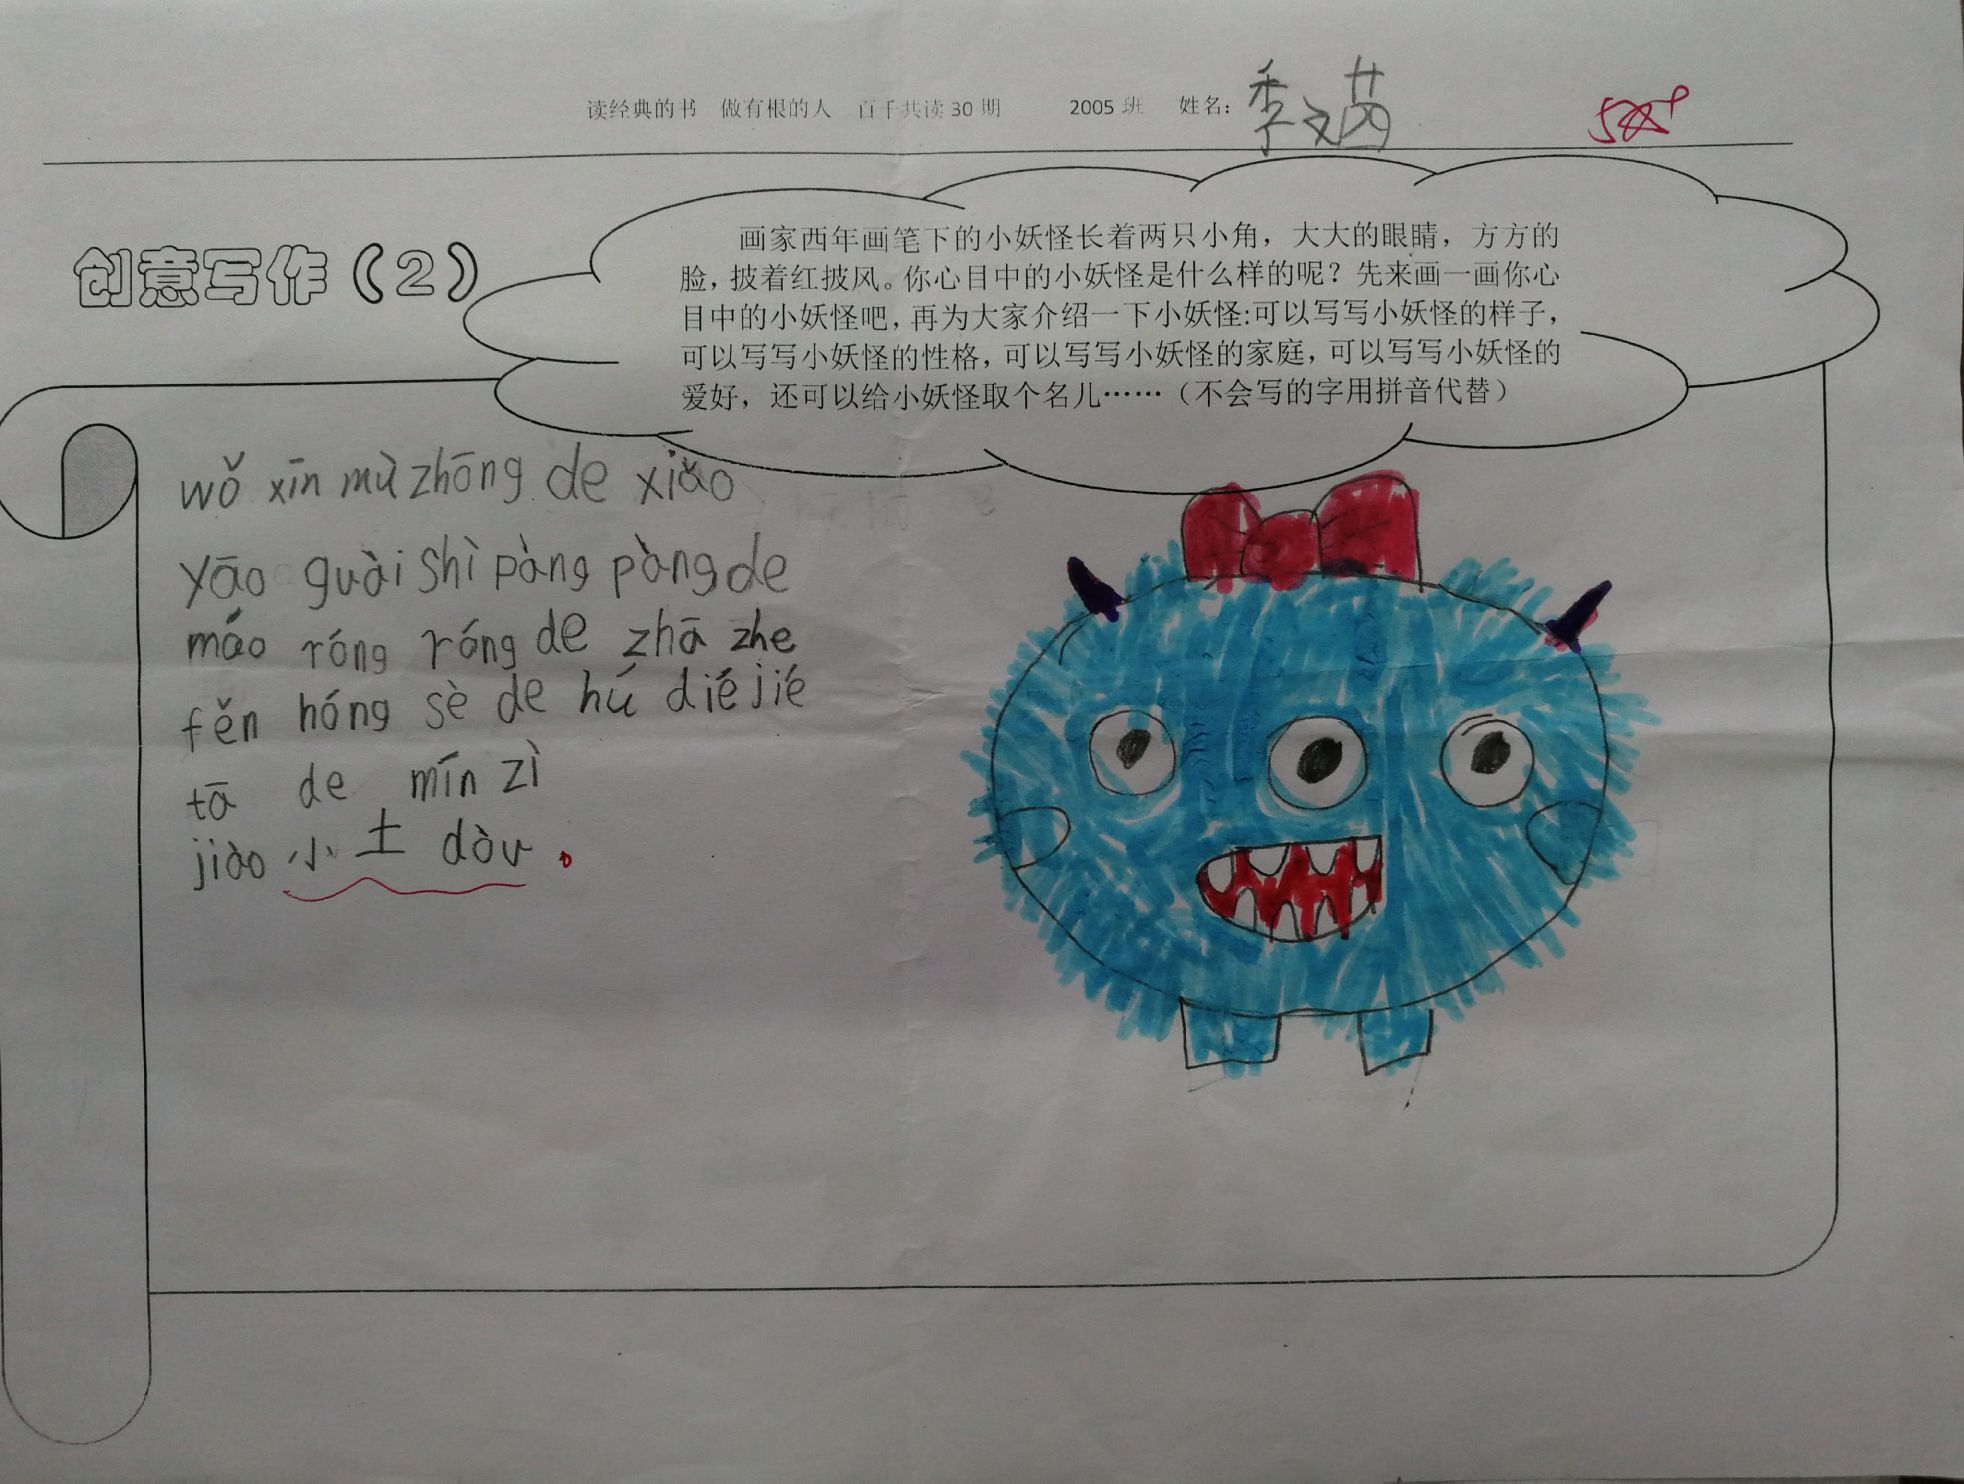 读经典的书 做有根的人 百千共读30期 2005班 姓名：季文茵
5☆
创意写作（2）
画家西年画笔下的小妖怪长着两只小角，大大的眼睛，方方的
脸，披着红披风。你心目中的小妖怪是什么样的呢？先来画一画你心
目中的小妖怪吧，再为大家介绍一下小妖怪:可以写写小妖怪的样子，
可以写写小妖怪的性格，可以写写小妖怪的家庭，可以写写小妖怪的
爱好，还可以给小妖怪取个名儿……（不会写的字用拼音代替）
wǒ xīn mù zhōng de xiǎo
yāo guài shì pàng pàng de
máo róng róng de zhā zhe
fěn hóng sè de hú dié jié
tā de mín zì
jiào 小 土 dòu 。